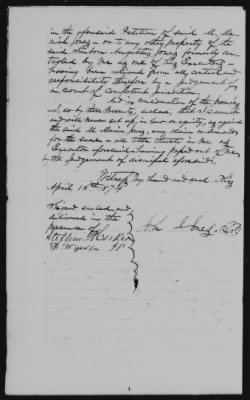 in the aforesaid Petition of said M. Ma-
ria Jones — or to any other property of the
said Reuben Augustus Jones formerly con-
trolled by me as one of his Executors —
having been released from all control and
responsibility therefor by a judgement of
a court of competent jurisdiction.
And in consideration of the premises
I do by these Presents, declare, that I cannot
and will never set up, in Law or equity, as against
the said M. Maria Jones, any claim or demand
for the same — all title thereto in me as
Executor aforesaid — having passed out of me
by the judgement of dismissal aforesaid.
Witness my hand and seal this
April 18th 1874
Signed sealed and
delivered in the
presence of
Jno J Jones